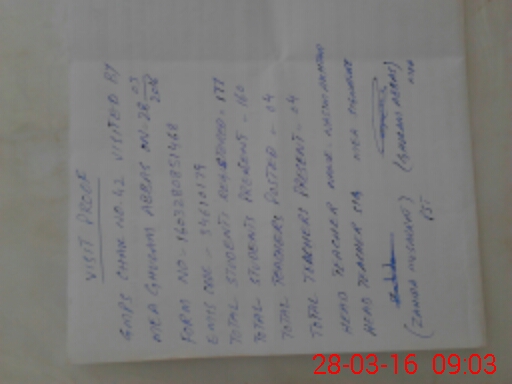 VISIT PROOF
GMPS CHAK NO. 42 VISITED BY
MEA GHULAM ABBAS ON 28 03 2016
FORM NO - 1603280851468
EMIS CODE -
TOTAL STUDENTS REGISTERED - 177
TOTAL STUDENTS PRESENT - 160
TOTAL TEACHERS POSTED - 04
TOTAL TEACHERS PRESENT - 04
HEAD TEACHER NAME:
HEAD TEACHER SIG MEA SIGNATURE
(GHULAM ABBAS)
MEA
28-03-16 09:03